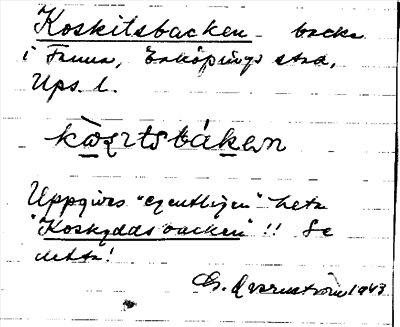 Koskitsbacken - backe
i Fanna, Enköpings stad,
Ups. l.
kò̱sɩtsbáḵen
Uppgives "egentligen" heta
"Koskyddsbacken"!! Se
detta!
G. Qvarnström 1943